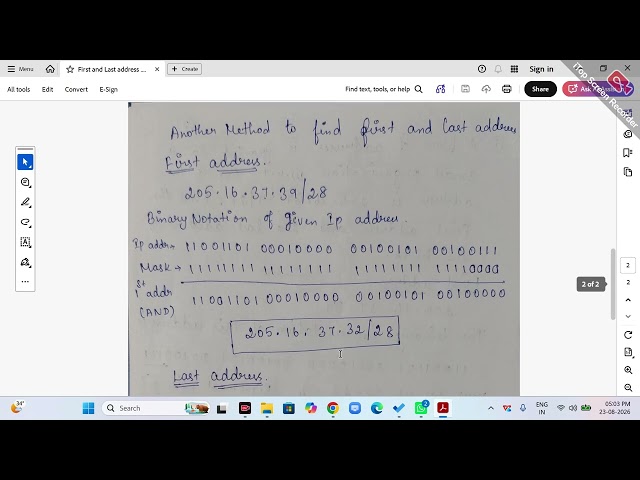 Menu
First and Last address ...
Create
Sign in
All tools
Edit
Convert
E-Sign
Find text, tools, or help
Share
Ask AI Assist
iTop Screen Recorder
Another Method to find first and last address
First address.
205.16.37.39/28
Binary Notation of given Ip address.
Ip addr → 11001101 00010000 00100101 00100111
Mask → 11111111 11111111 11111111 11110000
1st addr 11001101 00010000 00100101 00100000
(AND)
205.16.37.32/28
Last address.
2
2
2 of 2
34°
Search
2
ENG
IN
05:03 PM
23-08-2026